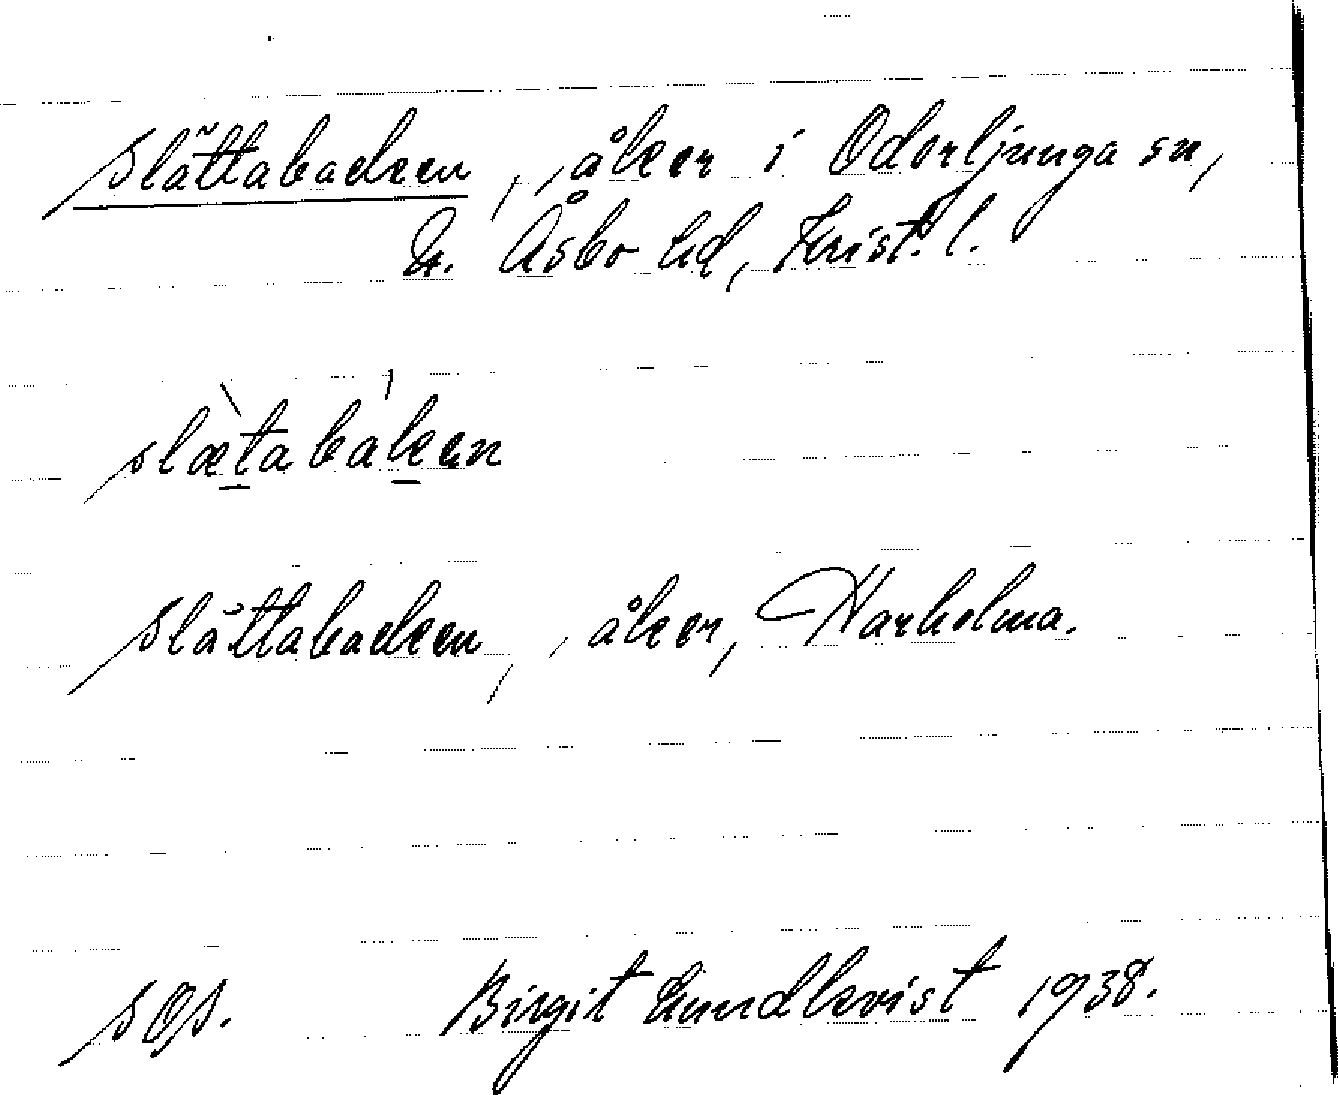 Slättabacken, , åker i Oderljunga sn,
N. Åsbo hd, Krist. l.
slætabakɘn
Slättabacken, , åker, Harholma.
SOS. Birgit Lundkvist 1938.